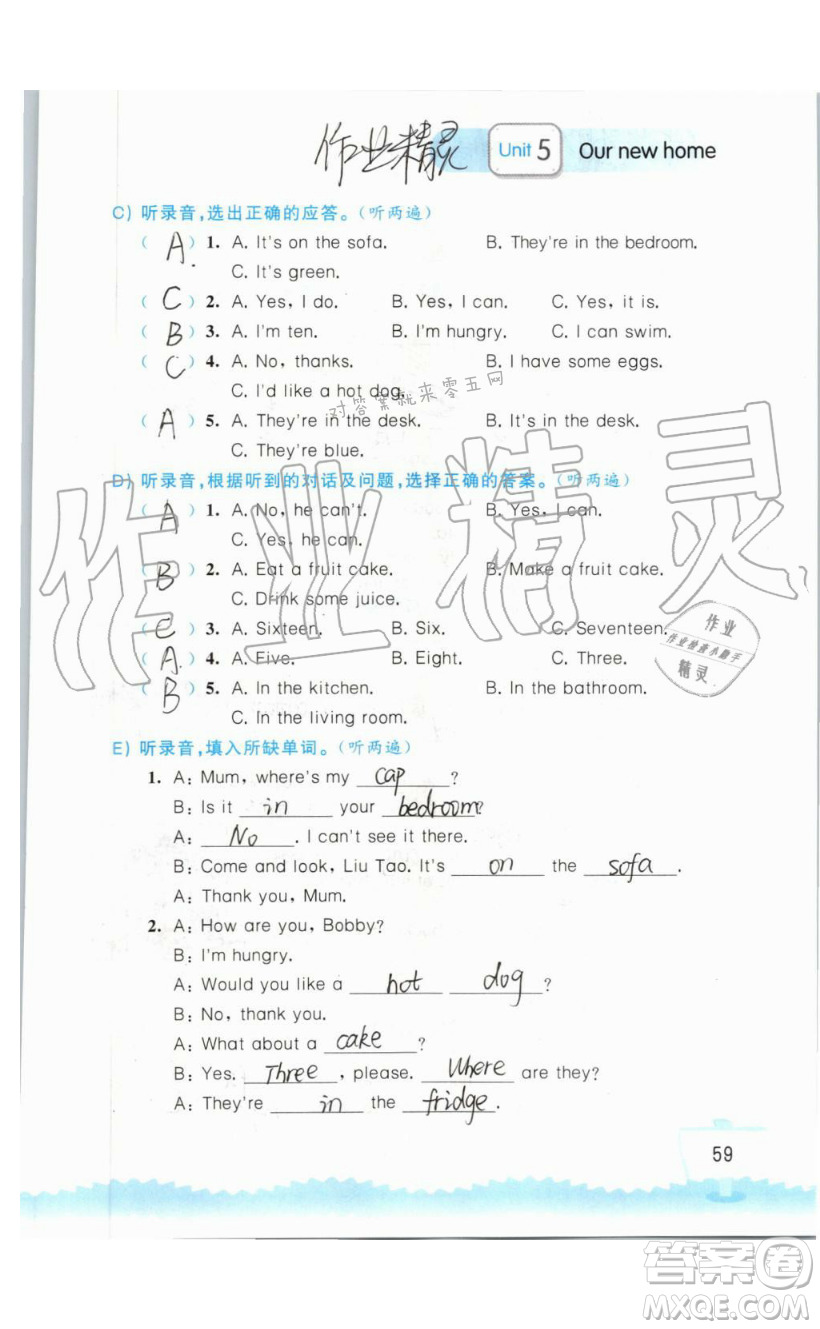 作业精灵 Unit 5 Our new home
C) 听录音,选出正确的应答。(听两遍)
( A ) 1. A. It's on the sofa. B. They're in the bedroom.
C. It's green.
( C ) 2. A. Yes, I do. B. Yes, I can. C. Yes, it is.
( B ) 3. A. I'm ten. B. I'm hungry. C. I can swim.
( C ) 4. A. No, thanks. B. I have some eggs.
C. I'd like a hot dog.
对答案就来零五网
( A ) 5. A. They're in the desk. B. It's in the desk.
C. They're blue.
D) 听录音,根据听到的对话及问题,选择正确的答案。(听两遍)
( A ) 1. A. No, he can't. B. Yes, I can.
C. Yes, he can.
( B ) 2. A. Eat a fruit cake. B. Make a fruit cake.
C. Drink some juice.
( C ) 3. A. Sixteen. B. Six. C. Seventeen.
( A ) 4. A. Five. B. Eight. C. Three.
( B ) 5. A. In the kitchen. B. In the bathroom.
C. In the living room.
作业精灵
作业
作业检查小助手
精灵
E) 听录音,填入所缺单词。(听两遍)
1. A: Mum, where's my cap ?
B: Is it in your bedroom?
A: No . I can't see it there.
B: Come and look, Liu Tao. It's on the sofa .
A: Thank you, Mum.
2. A: How are you, Bobby?
B: I'm hungry.
A: Would you like a hot dog ?
B: No, thank you.
A: What about a cake ?
B: Yes. Three , please. Where are they?
A: They're in the fridge .
59
答案卷
MXQE.COM